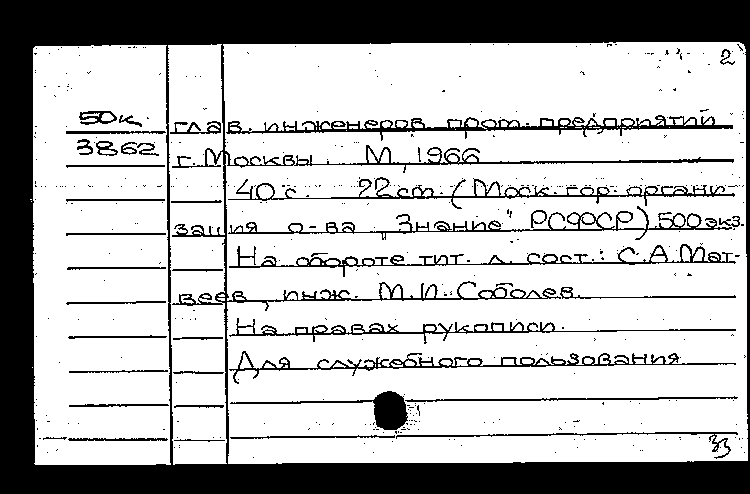 2
50к глав. инженеров пром. предприятий
3862 г. Москвы. М., 1966
40 с. 22 см. (Моск. гор. органи-
зация о-ва „Знание" РСФСР) 500 экз.
На обороте тит. л. сост.: С.А. Мат-
веев, инж. М.И. Соболев.
На правах рукописи.
Для служебного пользования.
33